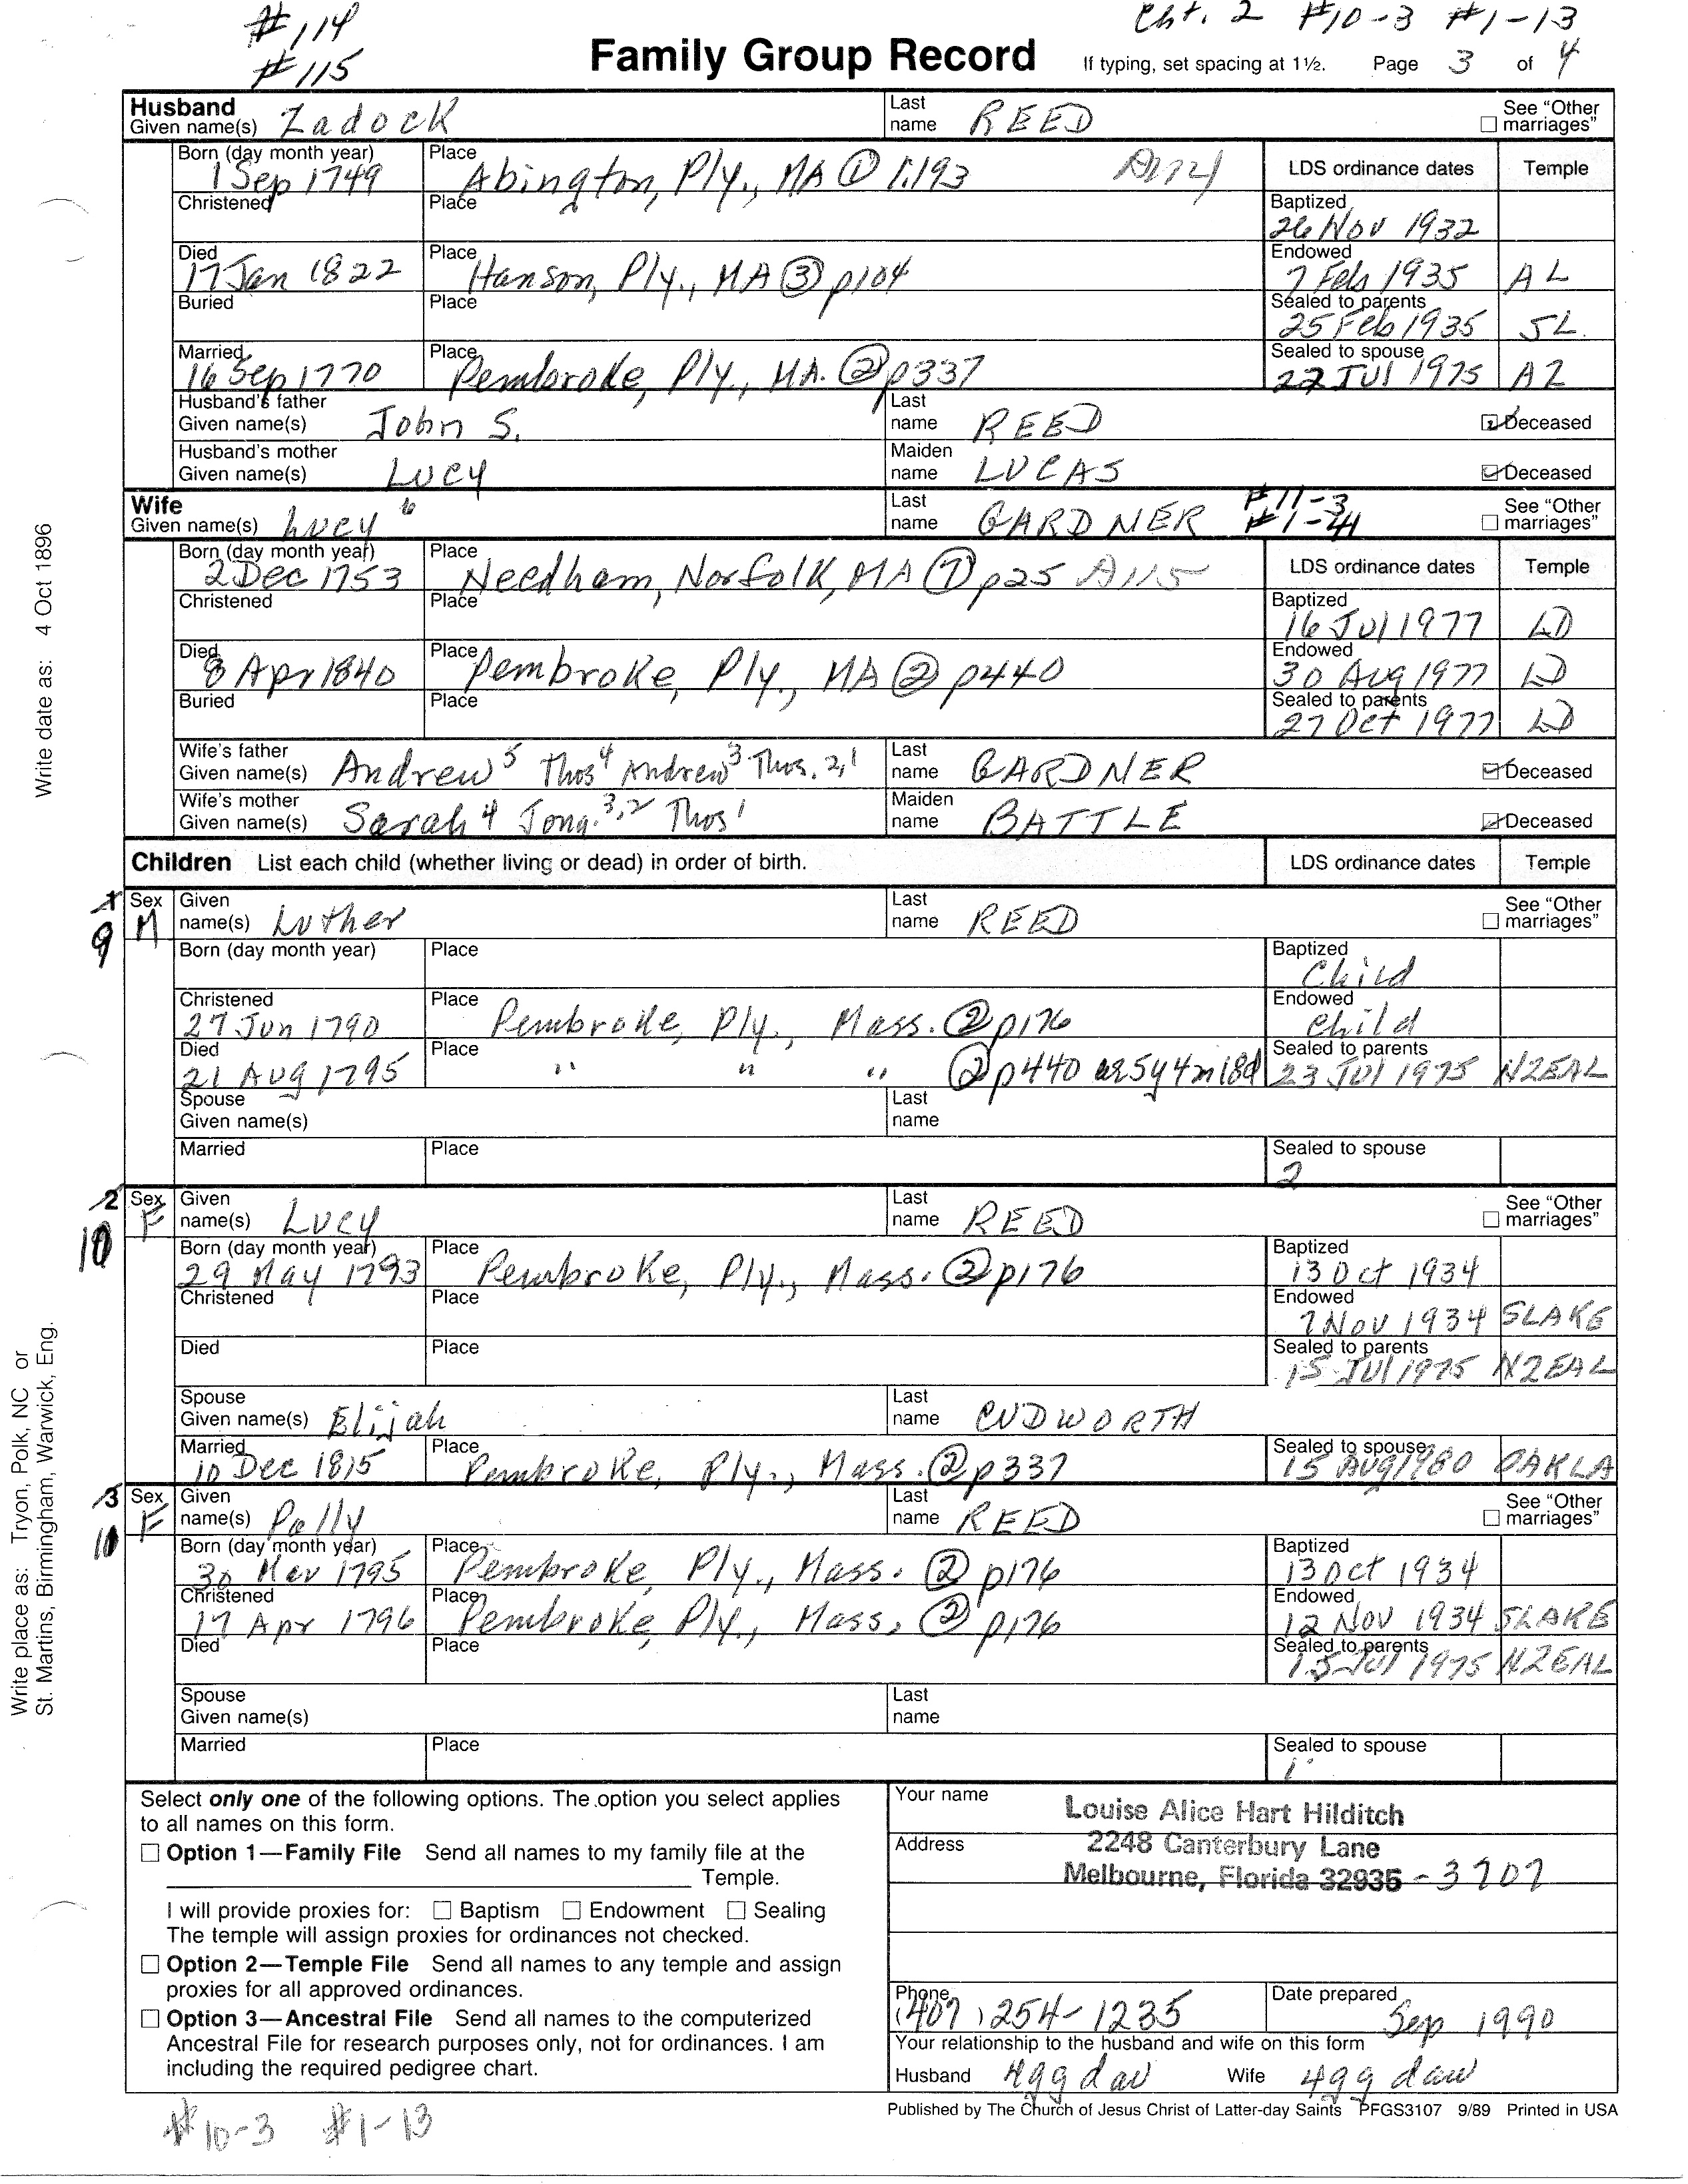 #114 Cht. 2 #10-3 #1-13
#115 Family Group Record If typing, set spacing at 1½. Page 3 of 4
Husband
Given name(s) Zadock Last name REED ☐ See "Other marriages"
Born (day month year) 1 Sep 1749 Place Abington, Ply., MA ① 1:193 A114 LDS ordinance dates Temple
Christened Place Baptized 26 Nov 1932
Died 17 Jan 1822 Place Hanson, Ply., MA ③ p104 Endowed 7 Feb 1935 AL
Buried Place Sealed to parents 25 Feb 1935 SL
Married 16 Sep 1770 Place Pembroke, Ply., MA. ② p337 Sealed to spouse 22 Jul 1975 AZ
Husband's father Given name(s) John S. Last name REED Deceased
Husband's mother Given name(s) Lucy Maiden name LUCAS Deceased
Wife
Given name(s) Lucy 6 Last name GARDNER #11-3 #1-41 ☐ See "Other marriages"
Born (day month year) 2 Dec 1753 Place Needham, Norfolk, MA ⑦ p25 A115 LDS ordinance dates Temple
Christened Place Baptized 16 Jul 1977 LD
Died 8 Apr 1840 Place Pembroke, Ply., MA ② p440 Endowed 30 Aug 1977 LD
Buried Place Sealed to parents 27 Oct 1977 LD
Wife's father Given name(s) Andrew 5 Thos 4 Andrew 3 Thos. 2,1 Last name GARDNER Deceased
Wife's mother Given name(s) Sarah 4 Jona. 3,2 Thos 1 Maiden name BATTLE Deceased
Children List each child (whether living or dead) in order of birth. LDS ordinance dates Temple
1 9 Sex M Given name(s) Luther Last name REED ☐ See "Other marriages"
Born (day month year) Place Baptized Child
Christened 27 Jun 1790 Place Pembroke, Ply., Mass. ② p176 Endowed Child
Died 21 Aug 1795 Place " " " ② p440 ae 5y 4m 18d Sealed to parents 23 Jul 1975 NZEAL
Spouse Given name(s) Last name
Married Place Sealed to spouse 2
2 10 Sex F Given name(s) Lucy Last name REED ☐ See "Other marriages"
Born (day month year) 29 May 1793 Place Pembroke, Ply., Mass. ② p176 Baptized 13 Oct 1934
Christened Place Endowed 7 Nov 1934 SLAKE
Died Place Sealed to parents 15 Jul 1975 NZEAL
Spouse Given name(s) Elijah Last name CUDWORTH
Married 10 Dec 1815 Place Pembroke, Ply., Mass. ② p337 Sealed to spouse 15 Aug 1980 OAKLA
3 Sex F Given name(s) Polly Last name REED ☐ See "Other marriages"
Born (day month year) 30 Mar 1795 Place Pembroke, Ply., Mass. ② p176 Baptized 13 Oct 1934
Christened 17 Apr 1796 Place Pembroke, Ply., Mass. ② p176 Endowed 12 Nov 1934 SLAKE
Died Place Sealed to parents 15 Jul 1975 NZEAL
Spouse Given name(s) Last name
Married Place Sealed to spouse 1
Select only one of the following options. The option you select applies
to all names on this form.
☐ Option 1—Family File Send all names to my family file at the
Temple.
I will provide proxies for: ☐ Baptism ☐ Endowment ☐ Sealing
The temple will assign proxies for ordinances not checked.
☐ Option 2—Temple File Send all names to any temple and assign
proxies for all approved ordinances.
☐ Option 3—Ancestral File Send all names to the computerized
Ancestral File for research purposes only, not for ordinances. I am
including the required pedigree chart.
Your name Louise Alice Hart Hilditch
Address 2248 Canterbury Lane
Melbourne, Florida 32935 -3707
Phone (407) 254-1235 Date prepared Sep 1990
Your relationship to the husband and wife on this form
Husband 4gg dau Wife 4gg dau
Published by The Church of Jesus Christ of Latter-day Saints PFGS3107 9/89 Printed in USA
#10-3 #1-13
Write date as: 4 Oct 1896
Write place as: Tryon, Polk, NC or
St. Martins, Birmingham, Warwick, Eng.